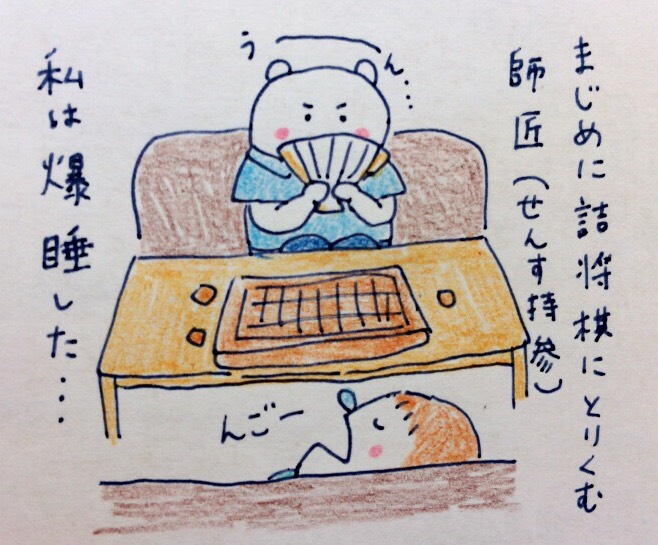 まじめに詰将棋にとりくむ
師匠(せんす持参)
うーん…
んごー
私は爆睡した…